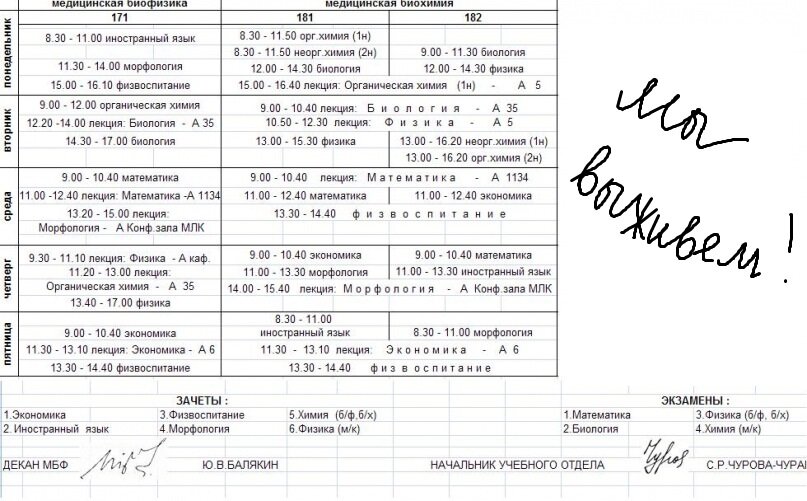 медицинская биофизика медицинская биохимия
171 181 182
понедельник
8.30 - 11.00 иностранный язык
8.30 - 11.50 орг.химия (1н)
8.30 - 11.50 неорг.химия (2н)
9.00 - 11.30 биология
11.30 - 14.00 морфология
12.00 - 14.30 биология
12.00 - 14.30 физика
15.00 - 16.10 физвоспитание
15.00 - 16.40 лекция: Органическая химия (1н) - А 5
вторник
9.00 - 12.00 органическая химия
9.00 - 10.40 лекция: Биология - А 35
12.20 -14.00 лекция: Биология - А 35
10.50 - 12.30 лекция: Физика - А 5
14.30 - 17.00 биология
13.00 - 15.30 физика
13.00 - 16.20 неорг.химия (1н)
13.00 - 16.20 орг.химия (2н)
среда
9.00 - 10.40 математика
9.00 - 10.40 лекция: Математика - А 1134
11.00 -12.40 лекция: Математика -А 1134
11.00 - 12.40 математика
11.00 - 12.40 экономика
13.20 - 15.00 лекция:
Морфология - А Конф.зала МЛК
13.30 - 14.40 физвоспитание
четверг
9.30 - 11.10 лекция: Физика - А каф.
9.00 - 10.40 экономика
9.00 - 10.40 математика
11.20 - 13.00 лекция:
Органическая химия - А 35
11.00 - 13.30 морфология
11.00 - 13.30 иностранный язык
13.40 - 17.00 физика
14.00 - 15.40 лекция: Морфология - А Конф.зала МЛК
пятница
9.00 - 10.40 экономика
8.30 - 11.00
иностранный язык
8.30 - 11.00 морфология
11.30 - 13.10 лекция: Экономика - А 6
11.30 - 13.10 лекция: Экономика - А 6
13.30 - 14.40 физвоспитание
13.30 - 14.40 физвоспитание
мы
выживем!
ЗАЧЕТЫ :
1.Экономика 3.Физвоспитание 5.Химия (б/ф,б/х)
2. Иностранный язык 4.Морфология 6.Физика (м/к)
ЭКЗАМЕНЫ :
1.Математика 3.Физика (б/ф, б/х)
2.Биология 4.Химия (м/к)
ДЕКАН МБФ Ю.В.БАЛЯКИН НАЧАЛЬНИК УЧЕБНОГО ОТДЕЛА С.Р.ЧУРОВА-ЧУРА